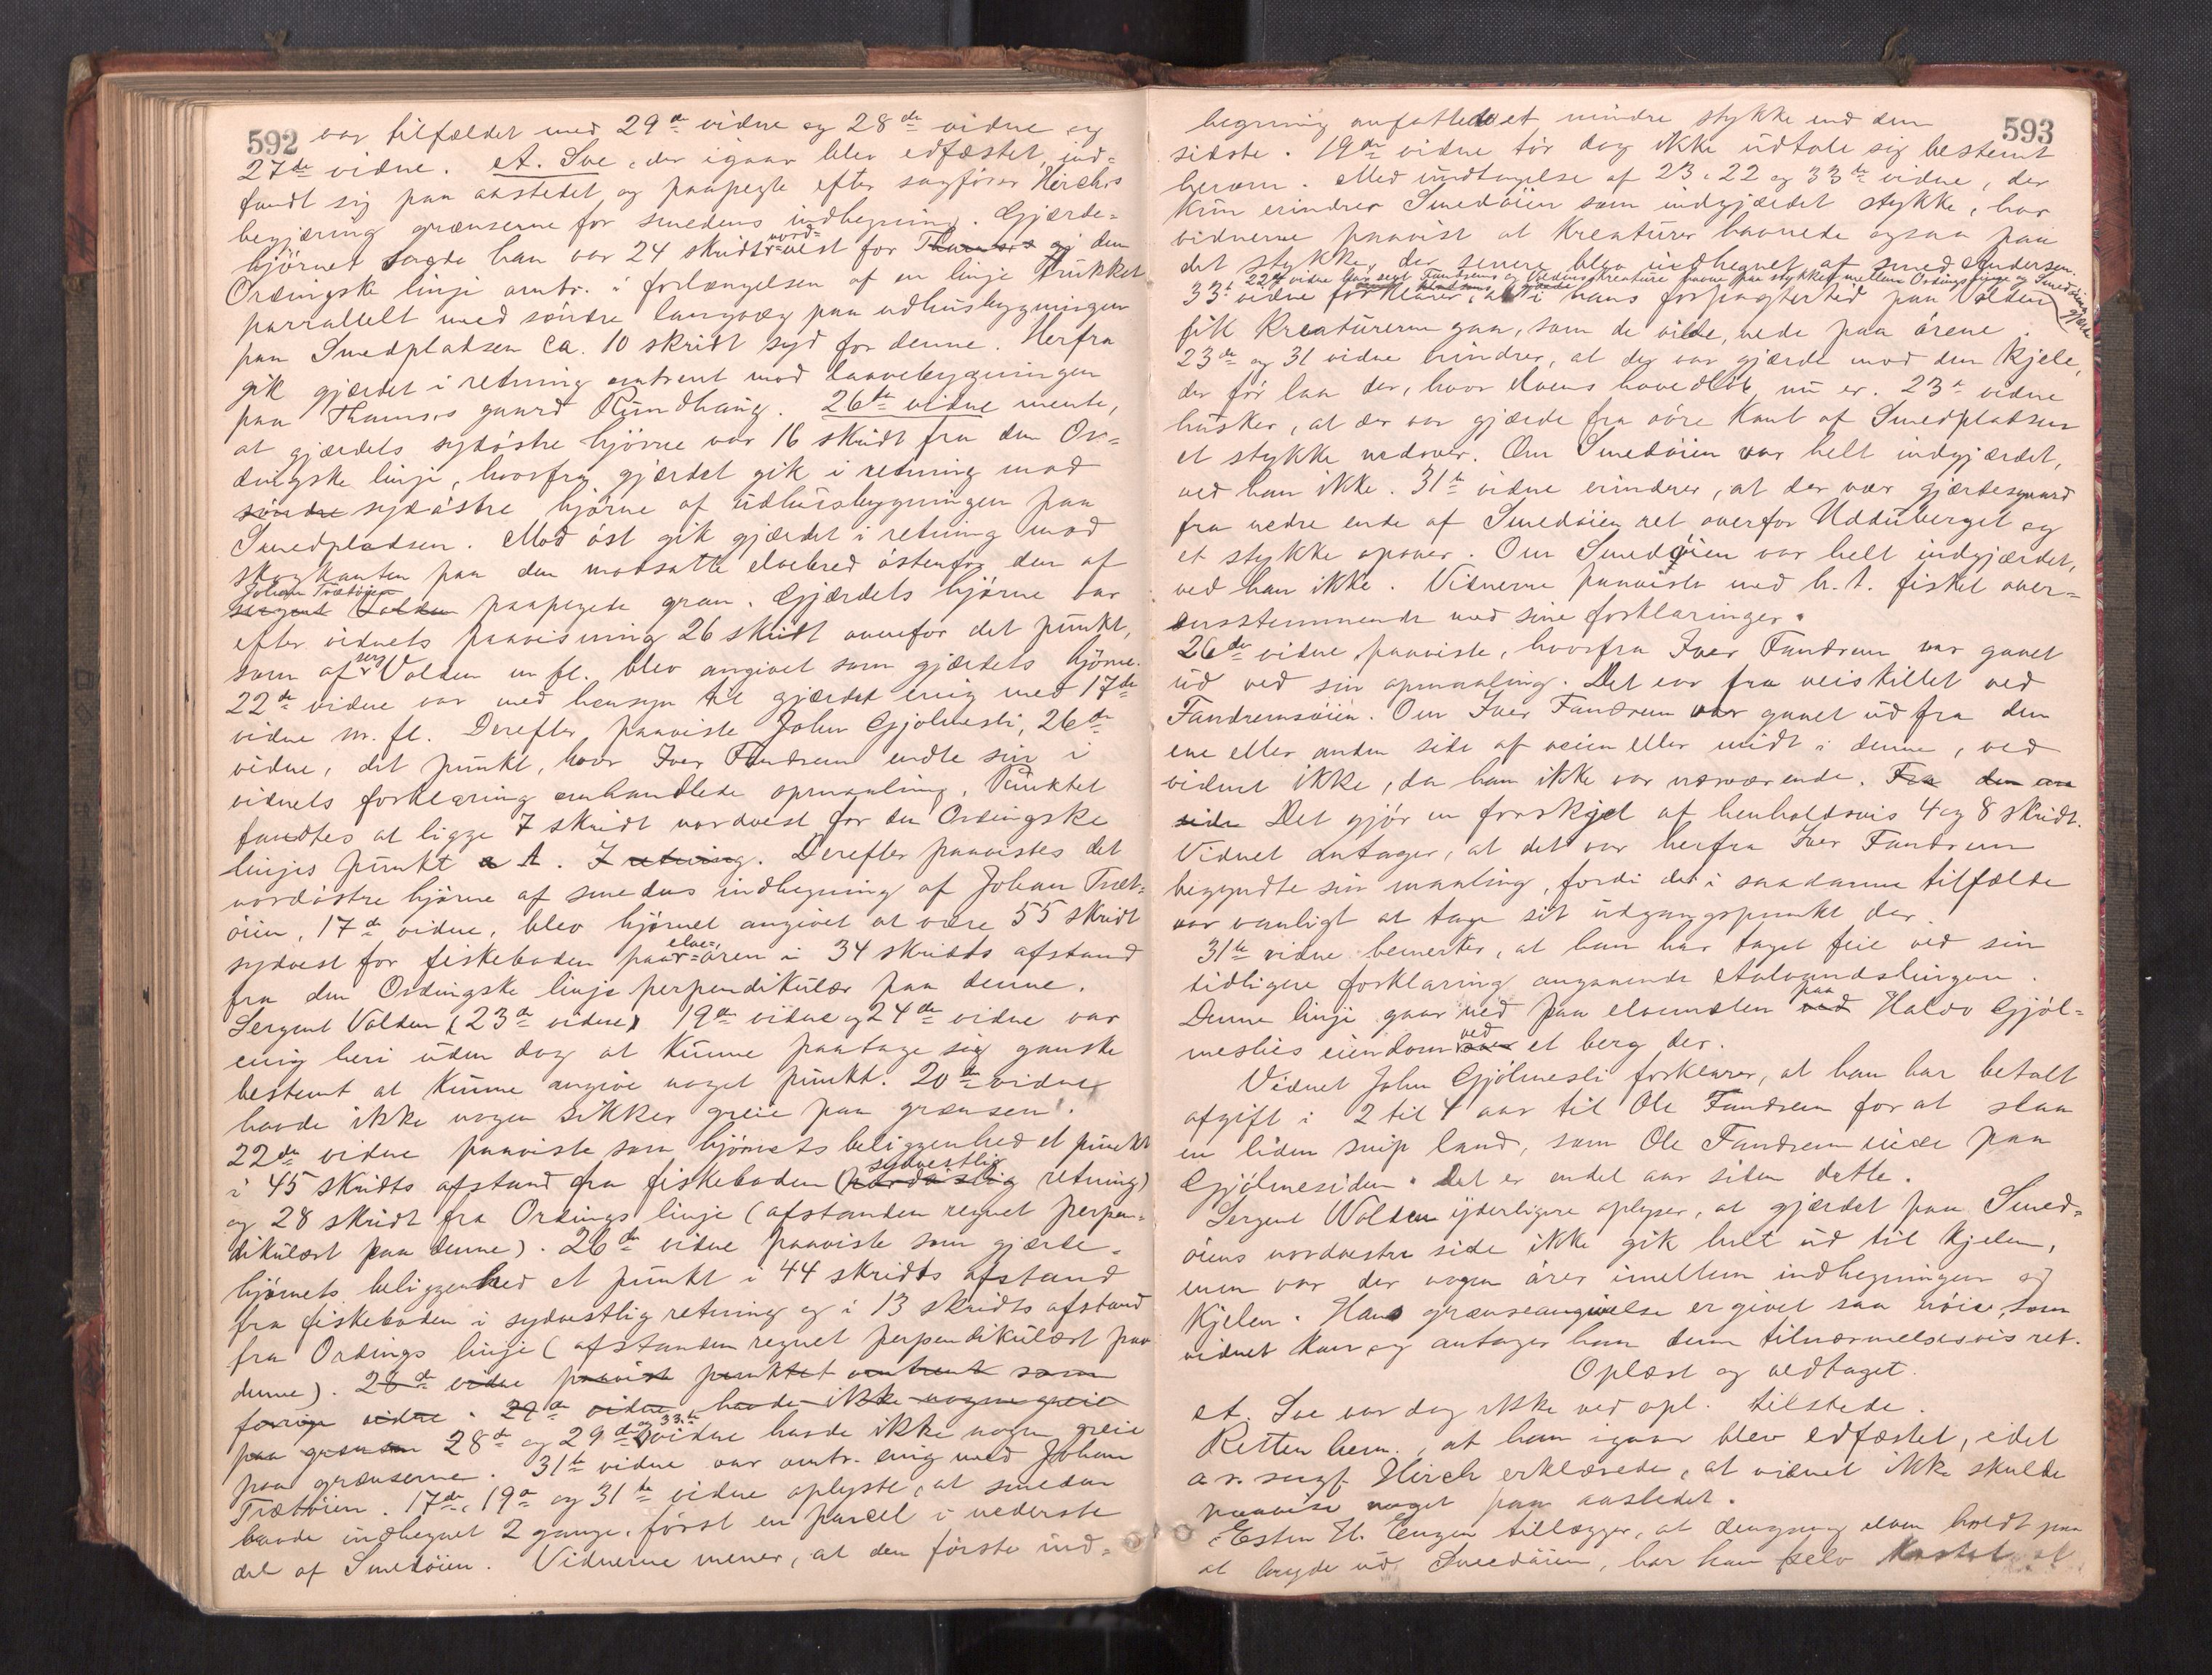 592
var tilfældet med 29de vidne og 28de vidne og
27de vidne. A. Soe, der igaar blev edfæstet, ind=
fandt sig paa aastedet og paapegte efter sagfører Hirchs
begjæring grænserne for smedens indhegning. Gjærde=
hjörnet sagde han var 24 skridt nord=vest for Thamses gj den
Ordingske linje omtr. i forlængelsen af en linje trukket
parrallelt med söndre langvæg paa udhusbygningen
paa Smedpladsen ca. 10 skridt syd for denne. Herfra
gik gjærdet i retning omtrent mod laavebygningen
paa Thamses gaard Rundhaug. 26de vidne mente,
at gjærdets sydöstre hjörne var 16 skridt fra den Or=
dingske linje, hvorfra gjærdet gik i retning mod
söndre sydöstre hjörne af udhusbygningen paa
Smedpladsen. Mod öst gik gjærdet i retning mod
skogkanten paa den modsatte elvebred östenfor den af
Johan Trætöien
sergent Volden paapegede gran. Gjærdets hjörne var
efter vidnets paavisning 26 skridt ovenfor det punkt,
som af serg Volden m fl. blev angivet som gjærdets hjörne.
22de vidne var med hensyn til gjærdet enig med 17de
vidne m. fl. Derefter paaviste John Gjölmesli, 26de
vidne, det punkt, hvor Iver Fandrem endte sin i
vidnets forklaring omhandlede opmaaling. Punktet
fandtes at ligge 7 skridt nordvest for den Ordingske
linjes punkt a A. I retning. Derefter paavistes det
nordöstre hjörne af smedens indhegning af Johan Træt=
öien, 17de vidne, blev hjörnet angivet at være 55 skridt
sydvest for fiskeboden paa elve=ören i 34 skridts afstand
fra den Ordingske linje perpendikulær paa denne.
Sergent Volden (23de vidne) 19de vidne og 24de vidne var
enig heri uden dog at kunne paatage sig ganske
bestemt at kunne angive noget punkt. 20de vidne
havde ikke nogen sikker greie paa grænsen.
22de vidne paaviste som hjörnets beliggenhed et punkt
i 45 skridts afstand fra fiskeboden (nordöstlig sydvestlig retning)
og 28 skridt fra Ordings linje (afstanden regnet perpen=
dikulært paa denne). 26de vidne paaviste som gjærde=
hjörnets beliggenhed et punkt i 44 skridts afstand
fra fiskeboden i sydvestlig retning og i 13 skridts afstand
fra Ordings linje (afstanden regnet perpendikulært paa
denne). 28de vidne paaviste punktet omtrent som
forrige vidne. 29de vidne havde ikke nogen greie
paa grænsen 28de og 29de og 33te vidne havde ikke nogen greie
paa grænserne. 31te vidne var omtr. enig med Johan
Trætöien. 17de, 19de og 31te vidne oplyste, at smeden
havde indhegnet 2 gange, först en parcel i nederste
del af Smedöien. Vidnerne mener, at den förste ind=
593
hegning omfattede et mindre stykke end den
sidste. 19de vidne tör dog ikke udtale sig bestemt
herom. Med undtagelse af 23, 22 og 33te vidne, der
kun erindrer Smedöien som indgjærdet stykke, har
vidnerne paavist at kreaturer havnede ogsaa paa
det stykke, der senere blev indhegnet af smed Andersen.
22de vidne har seet Fandrems og Voldens kreature havne paa stykket mellem Ordings linje og Smedöiens gjærde
33te vidne forklarer, at i hans forpagtertid paa Volden
fik kreaturerne gaa, som de vilde, nede paa örene.
23de og 31 vidne erindrer, at der var gjærde mod den kjele,
der för laa der, hvor elvens hovedlöb nu er. 23de vidne
husker, at der var gjærde fra övre kant af Smedpladsen
et stykke nedover. Om Smedöien var helt indgjærdet,
ved han ikke. 31te vidne erindrer, at der var gjærdesgaard
fra nedre ende af Smedöien ret overfor Udduberget og
et stykke opover. Om Smedöien var helt indgjærdet,
ved han ikke. Vidnerne paaviste med h. t. fisket over=
ensstemmende med sine forklaringer.
26de vidne paaviste, hvorfra Iver Fandrem var gaaet
ud ved sin opmaaling. Det var fra veiskillet ved
Fandremsöien. Om Iver Fandrem var gaaet ud fra den
ene eller anden side af veien eller midt i denne, ved
vidnet ikke, da han ikke var nærværende. Fra den ene
side Det gjör en forskjel af henholdsvis 4 og 8 skridt.
Vidnet antager, at det var herfra Iver Fandrem
begyndte sin maaling, fordi det i saadanne tilfælde
var vanligt at tage sit udgangspunkt der.
31te vidne bemerker, at han har taget feil ved sin
tidligere forklaring angaaende
Denne linje gaar ned paa elvemælen ved paa Halvo Gjöl=
meslies eiendom ved et berg der.
Vidnet John Gjölmesli forklarer, at han har betalt
afgift i 2 til 4 aar til Ole Fandrem for at slaa
en liden snip land, som Ole Fandrem eiede paa
Gjölmesiden. Det er endel aar siden dette.
Sergent Volden yderligere oplyser, at gjærdet paa Smed=
öiens nordvestre side ikke gik helt ud til kjelen,
men var der nogen örer imellem indhegningen og
kjelen. Hans grænseangivelse er givet saa nöie, som
vidnet kan, og antager han denne tilnærmelsesvis ret.
Oplæst og vedtaget.
A. Soe var dog ikke ved opl. tilstede.
Retten bem., at han igaar blev edfæstet, idet
o. r. sagf. Hirch erklærede, at vidnet ikke skulde
paavise noget paa aastedet.
Esten H. Engen tillægger, at dengang elven holdt paa
at bryde ud Smedöien, har han selv